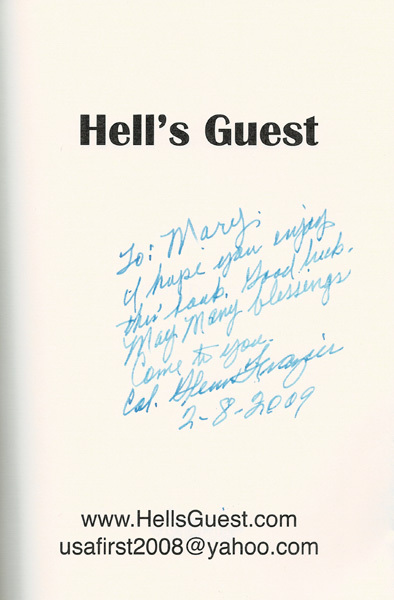 Hell's Guest
To: Mary.
I hope you enjoy
this book. Good luck.
May Many blessings
Come to you.
Col. Glenn Frazier
2-8-2009
www.HellsGuest.com
usafirst2008@yahoo.com